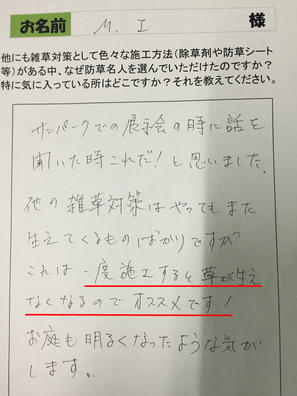 お名前 M. I 様
他にも雑草対策として色々な施工方法(除草剤や防草シート
等)がある中、なぜ防草名人を選んでいただけたのですか?
特に気に入っている所はどこですか?それを教えてください。
サンパークでの展示会の時に話を
聞いた時これだ!と思いました。
他の雑草対策はやってもまた
生えてくるものばかりですが
これは一度施工すると草が生え
なくなるのでオススメです!
お庭も明るくなったような気が
します。